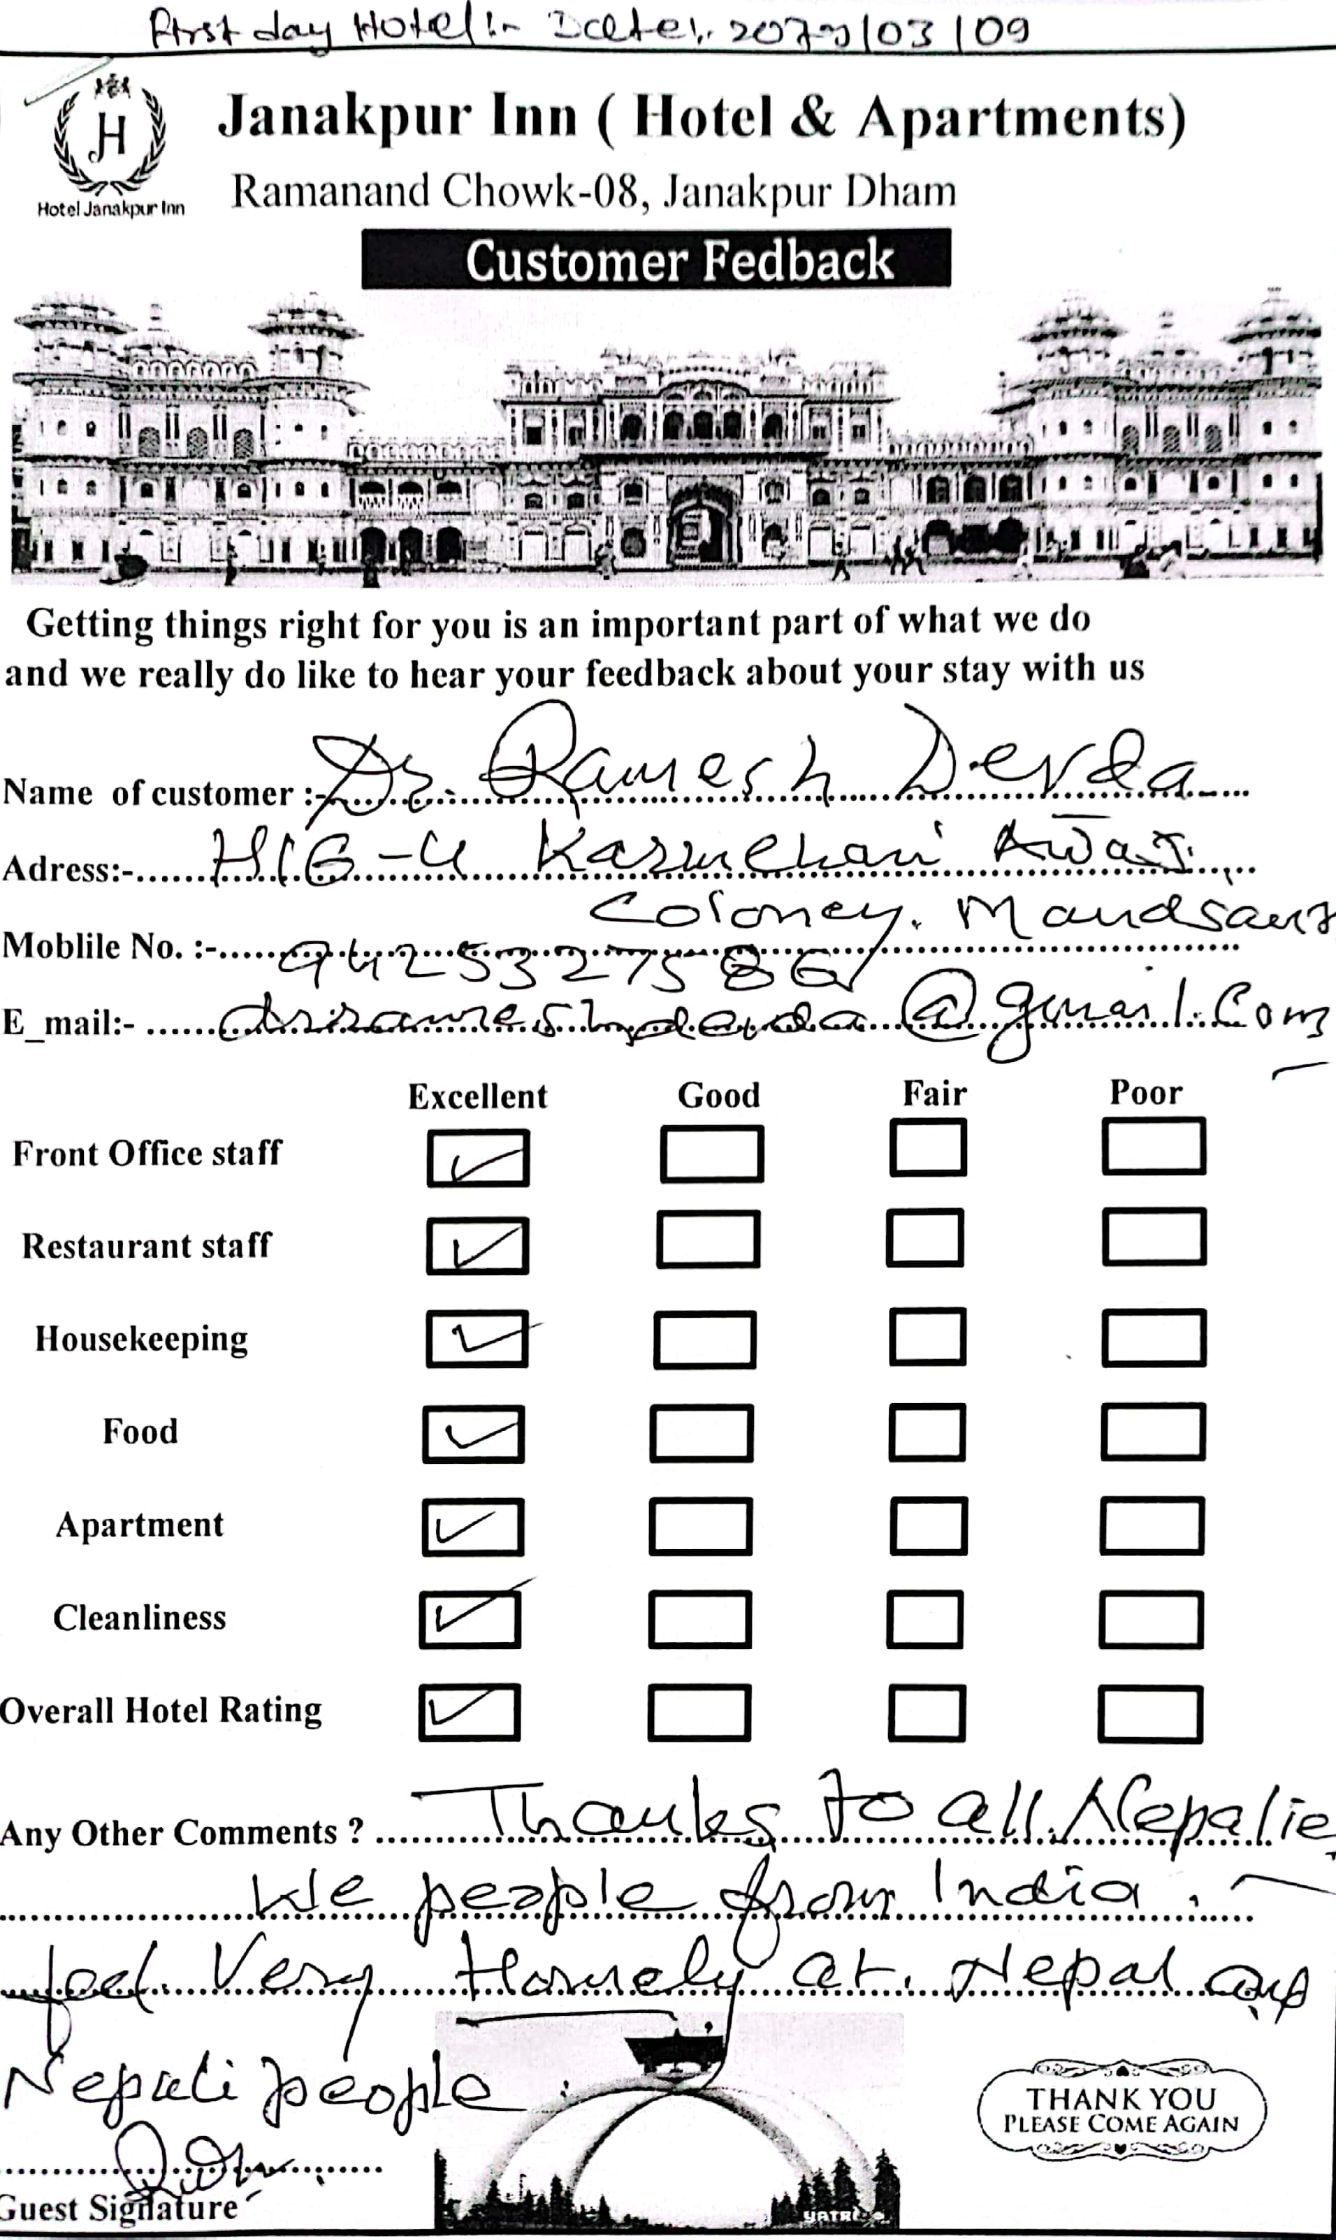 First day Hotel :- Date:. 2079/03/09
H
Hotel Janakpur Inn
Janakpur Inn ( Hotel & Apartments)
Ramanand Chowk-08, Janakpur Dham
Customer Fedback
Getting things right for you is an important part of what we do
and we really do like to hear your feedback about your stay with us
Name of customer :- Dr. Ramesh Devda
Adress:- HIG-4 Karmchari Awas
Coloney. Mandsaur
Moblile No. :- 9425327586
E_mail:- drrameshdevda@gmail.com
Excellent Good Fair Poor
Front Office staff
Restaurant staff
Housekeeping
Food
Apartment
Cleanliness
Overall Hotel Rating
Any Other Comments ? Thanks to all Nepalie
We people from India.
feel Very Homely at. Nepal
Nepali people
Guest Signature
YATRI
THANK YOU
PLEASE COME AGAIN